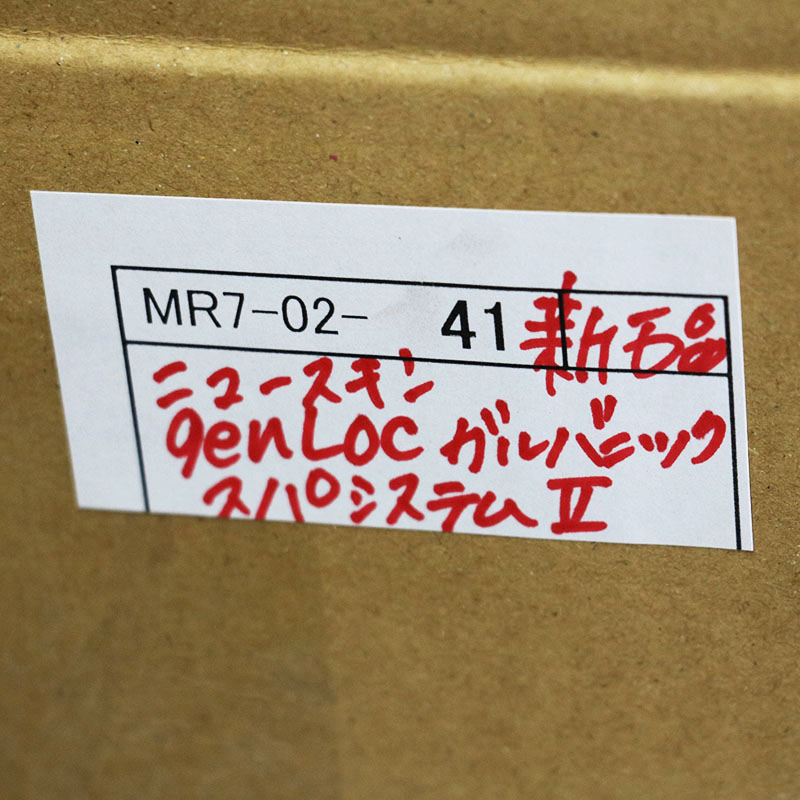 MR7-02- 41 新品
ニュースキン
genLoc ガルバニック
スパシステム Ⅱ